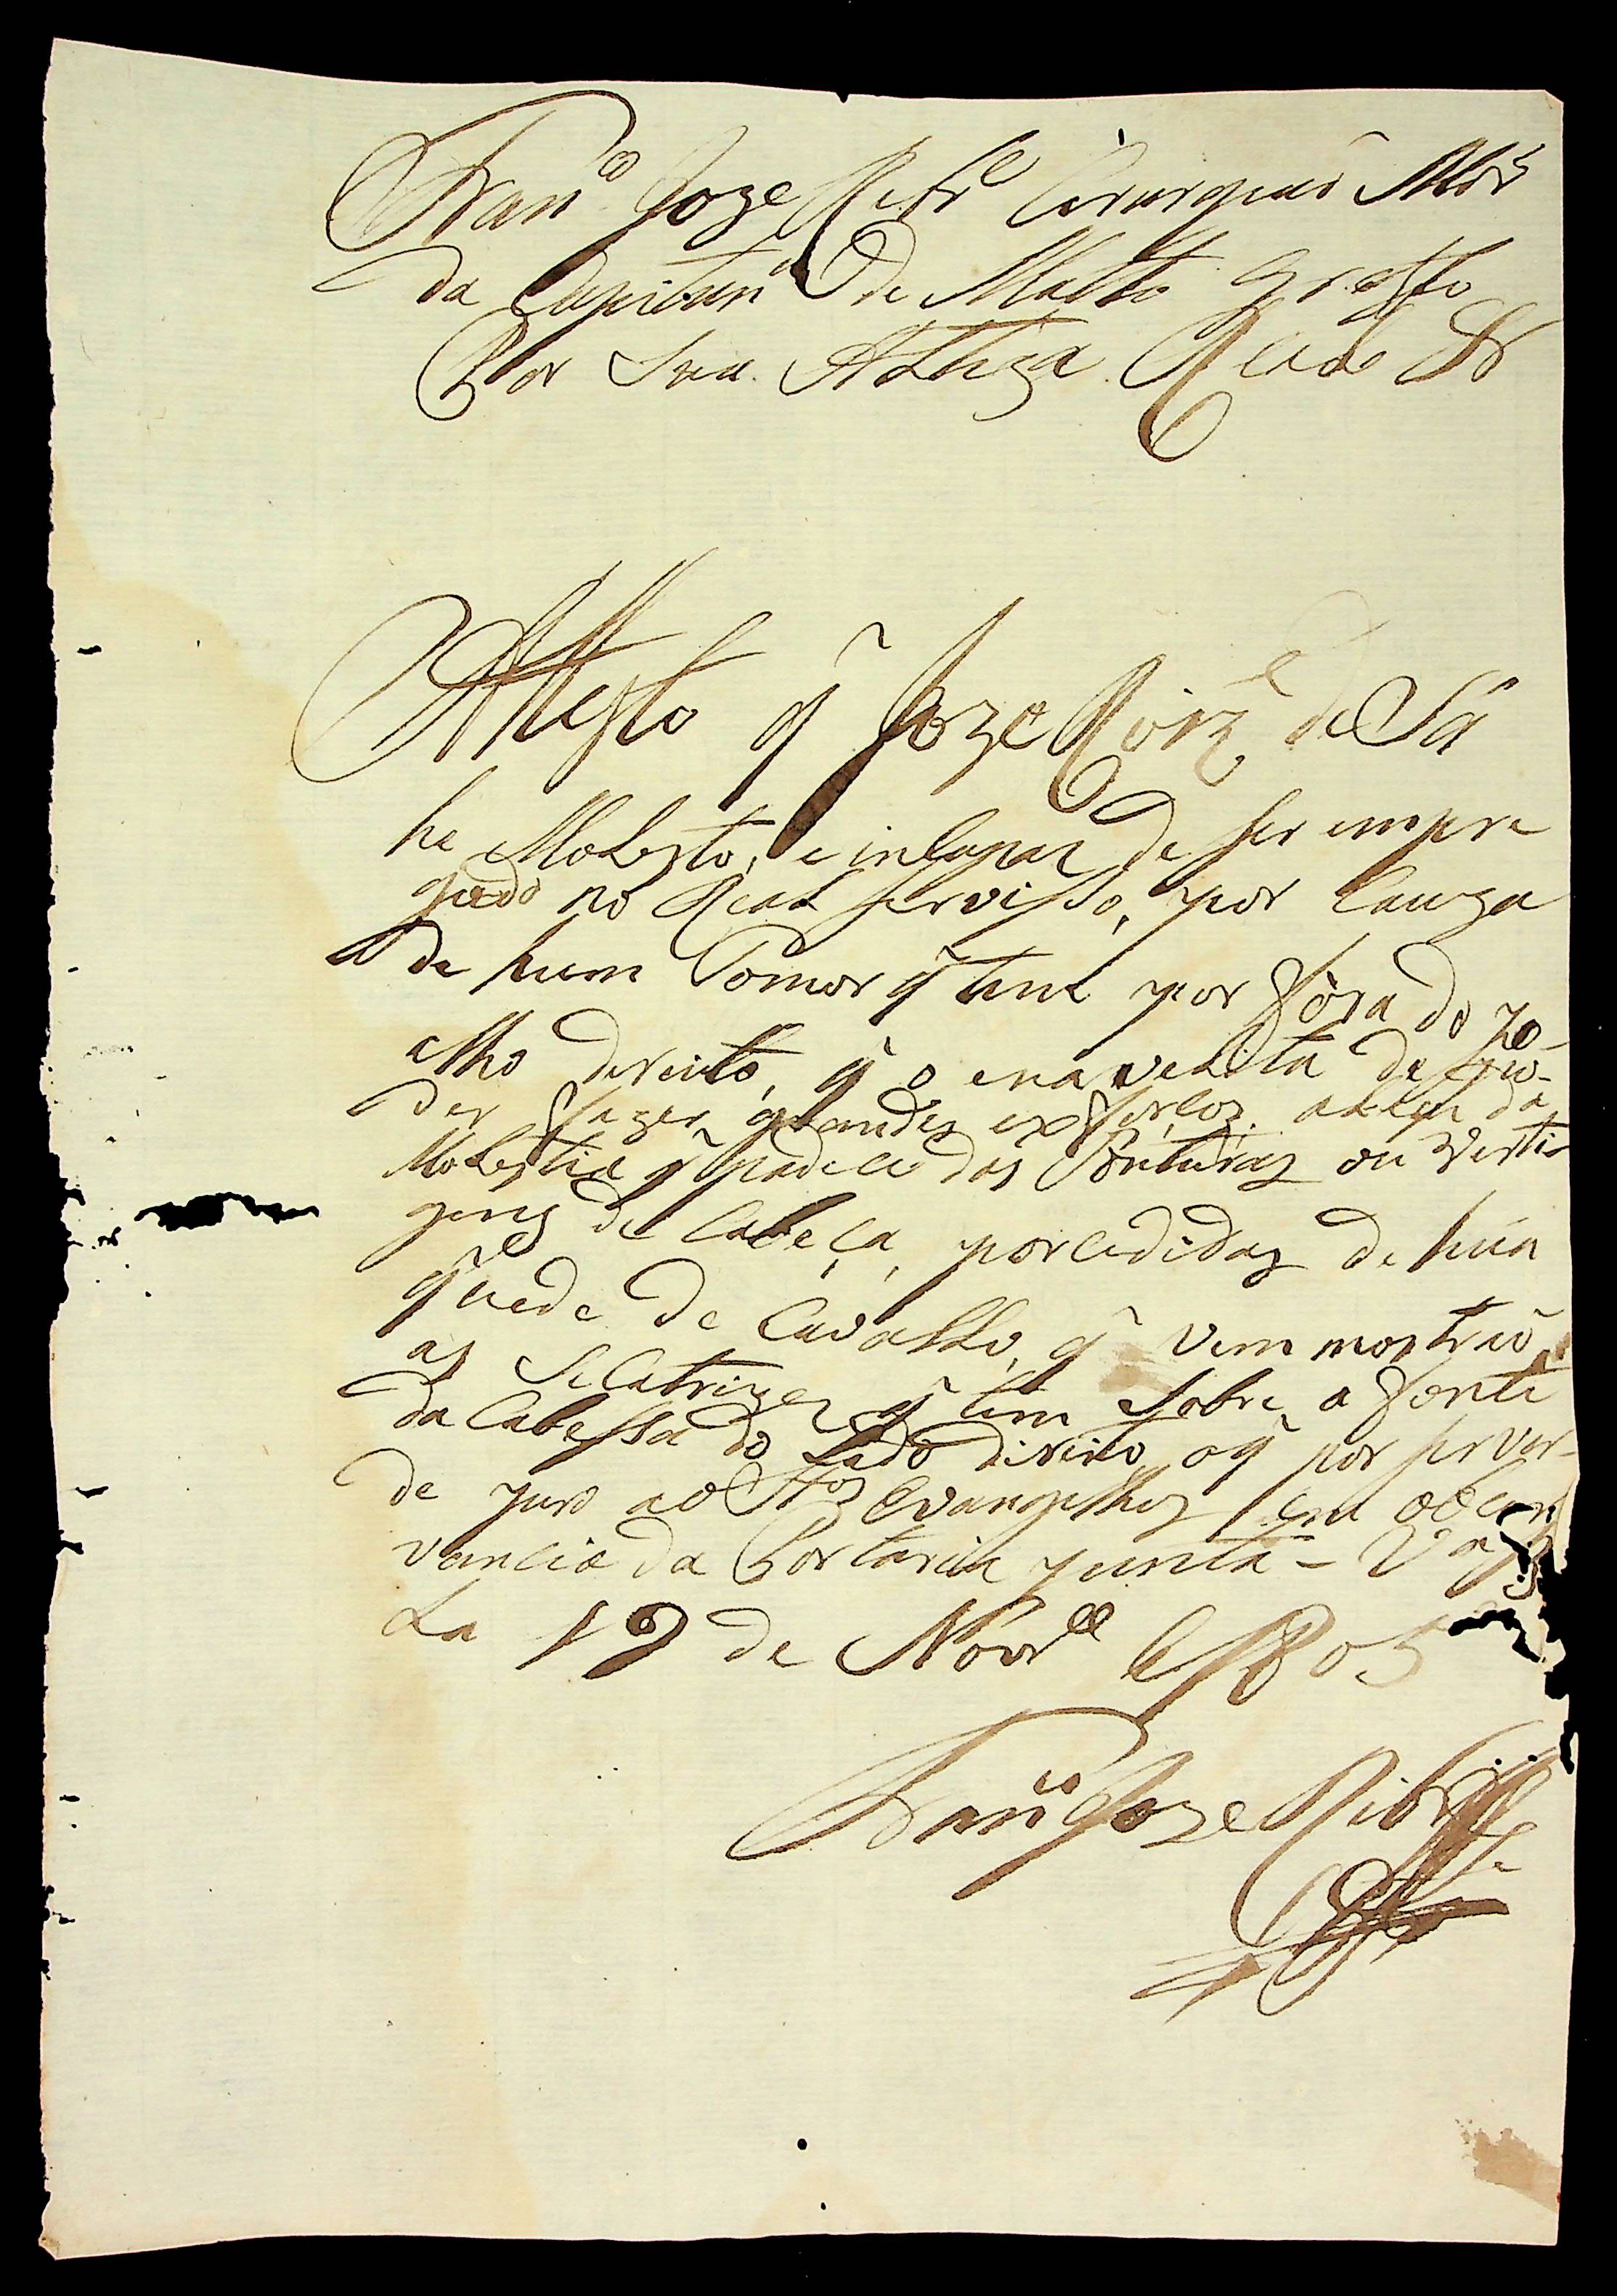 Fran.co Joze Ribr.o Cirurgiaó Mór
da Capitan.a de Matto Grosso
Por Sua Alteza Real &
Attesto q̃ Joze Roiz de Sá
he Molesto, e incapaz de ser empre
gado no Real servisso, por cauza
de hum Tomor q̃ tem por fóra do jo-
elho dereito, q̃ o enavelita de pu-
der fazer grandes exforços, alem da
Molestia q̃ padece das Tonturas ou verti-
gens de cabeça, porcedidas de húa
queda de Cavallo, q̃ vem mostraõ
as Secatrizes q̃ tem sobre a fonte
da Cabessa do Lado direito, o q̃ por ser ver-
de juro aos S.tos Evangelhos em obcer
vancia da Portaria junta - V.a
La 19 de Novr.e 1805
Fran.co Joze Ribr.o